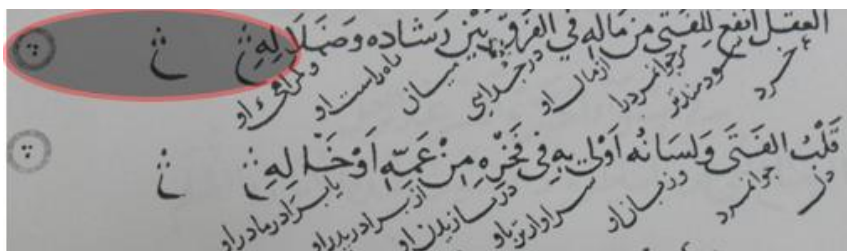 العقل انفع للفتى من ماله في الفرق بين رشاده وضلاله
خرد سودمندتر مر جوانمرد را از مال او در جدایی میان راه راست او و گمراهی او
قلب الفتى ولسانه أولى به في فخره من عمه أو خاله
دل جوانمرد و زبان او سزاوارتر باو در نازیدن او از برادر پدر او یا برادر مادر او